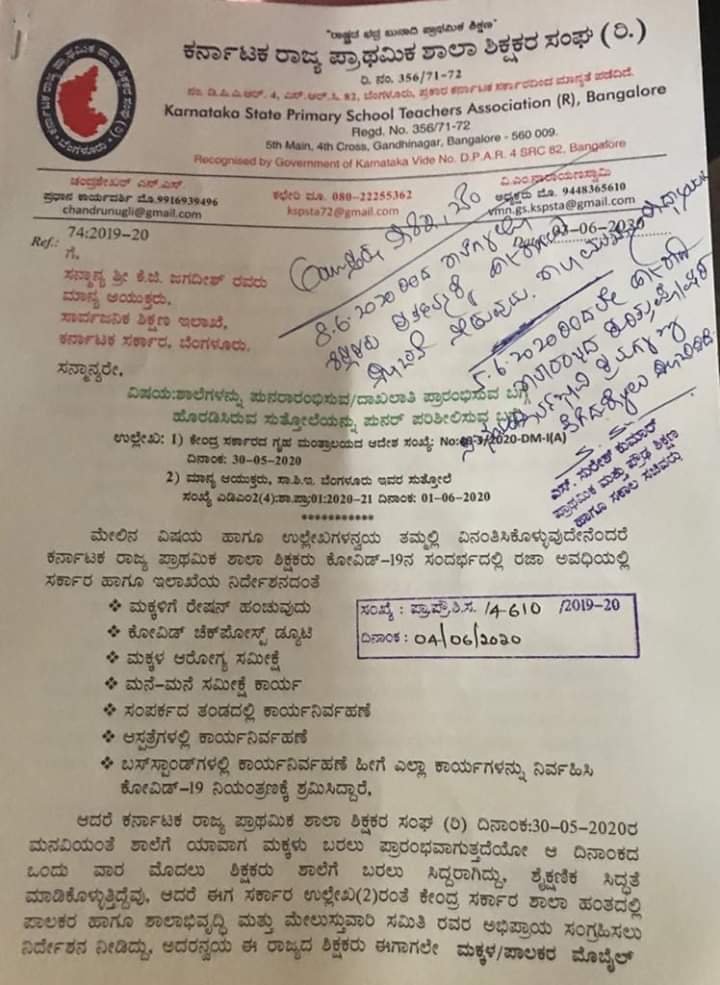 "ರಾಷ್ಟ್ರದ ಭದ್ರ ಬುನಾದಿ ಪ್ರಾಥಮಿಕ ಶಿಕ್ಷಣ"
ಕರ್ನಾಟಕ ರಾಜ್ಯ ಪ್ರಾಥಮಿಕ ಶಾಲಾ ಶಿಕ್ಷಕರ ಸಂಘ (ರಿ.)
ರಿ. ನಂ. 356/71-72
ನಂ. ಡಿ.ಪಿ.ಎ.ಆರ್. 4, ಎಸ್.ಆರ್.ಸಿ. 82, ಬೆಂಗಳೂರು, ಪ್ರಕಾರ ಕರ್ನಾಟಕ ಸರ್ಕಾರದಿಂದ ಮಾನ್ಯತೆ ಪಡೆದಿದೆ.
Karnataka State Primary School Teachers Association (R), Bangalore
Regd. No. 356/71-72
5th Main, 4th Cross, Gandhinagar, Bangalore - 560 009.
Recognised by Government of Karnataka Vide No. D.P.A.R. 4 SRC 82, Bangalore
ಚಂದ್ರಶೇಖರ್ ಎನ್.ಎಸ್.
ಪ್ರಧಾನ ಕಾರ್ಯದರ್ಶಿ ಮೊ.9916939496
chandrunugli@gmail.com
ಕಛೇರಿ ದೂ. 080-22255362
kspsta72@gmail.com
ವಿ.ಎಂ.ನಾರಾಯಣಸ್ವಾಮಿ
ಅಧ್ಯಕ್ಷರು ಮೊ. 9448365610
vmn.gs.kspsta@gmail.com
Ref.: 74:2019-20
03-06-2020
ಗೆ,
ಸನ್ಮಾನ್ಯ ಶ್ರೀ ಕೆ.ಜಿ. ಜಗದೀಶ್ ರವರು
ಮಾನ್ಯ ಆಯುಕ್ತರು,
ಸಾರ್ವಜನಿಕ ಶಿಕ್ಷಣ ಇಲಾಖೆ,
ಕರ್ನಾಟಕ ಸರ್ಕಾರ, ಬೆಂಗಳೂರು.
8.6.2020ರಿಂದ
5.6.2020ರಿಂದಲೇ
ಎಸ್. ಸುರೇಶ್ ಕುಮಾರ್
ಪ್ರಾಥಮಿಕ ಮತ್ತು ಪ್ರೌಢ ಶಿಕ್ಷಣ
ಹಾಗೂ ಸಕಾಲ ಸಚಿವರು
ಸನ್ಮಾನ್ಯರೇ,
ವಿಷಯ:ಶಾಲೆಗಳನ್ನು ಪುನರಾರಂಭಿಸುವ/ದಾಖಲಾತಿ ಪ್ರಾರಂಭಿಸುವ ಬಗ್ಗೆ
ಹೊರಡಿಸಿರುವ ಸುತ್ತೋಲೆಯನ್ನು ಪುನರ್ ಪರಿಶೀಲಿಸುವ
ಉಲ್ಲೇಖ: 1) ಕೇಂದ್ರ ಸರ್ಕಾರದ ಗೃಹ ಮಂತ್ರಾಲಯದ ಆದೇಶ ಸಂಖ್ಯೆ: No:40-3/2020-DM-I(A)
ದಿನಾಂಕ: 30-05-2020
2) ಮಾನ್ಯ ಆಯುಕ್ತರು, ಸಾ.ಶಿ.ಇ. ಬೆಂಗಳೂರು ಇವರ ಸುತ್ತೋಲೆ
ಸಂಖ್ಯೆ ಎಡಿಎಂ2(4):ಶಾ.ಪ್ರಾ:01:2020-21 ದಿನಾಂಕ: 01-06-2020
***********
ಮೇಲಿನ ವಿಷಯ ಹಾಗೂ ಉಲ್ಲೇಖಗಳನ್ವಯ ತಮ್ಮಲ್ಲಿ ವಿನಂತಿಸಿಕೊಳ್ಳುವುದೇನೆಂದರೆ
ಕರ್ನಾಟಕ ರಾಜ್ಯ ಪ್ರಾಥಮಿಕ ಶಾಲಾ ಶಿಕ್ಷಕರು ಕೋವಿಡ್-19ನ ಸಂದರ್ಭದಲ್ಲಿ ರಜಾ ಅವಧಿಯಲ್ಲಿ
ಸರ್ಕಾರ ಹಾಗೂ ಇಲಾಖೆಯ ನಿರ್ದೇಶನದಂತೆ
❖ ಮಕ್ಕಳಿಗೆ ರೇಷನ್ ಹಂಚುವುದು
❖ ಕೋವಿಡ್ ಚೆಕ್‌ಪೋಸ್ಟ್ ಡ್ಯೂಟಿ
❖ ಮಕ್ಕಳ ಆರೋಗ್ಯ ಸಮೀಕ್ಷೆ
❖ ಮನೆ-ಮನೆ ಸಮೀಕ್ಷೆ ಕಾರ್ಯ
❖ ಸಂಪರ್ಕದ ತಂಡದಲ್ಲಿ ಕಾರ್ಯನಿರ್ವಹಣೆ
❖ ಆಸ್ಪತ್ರೆಗಳಲ್ಲಿ ಕಾರ್ಯನಿರ್ವಹಣೆ
❖ ಬಸ್‌ಸ್ಟಾಂಡ್‌ಗಳಲ್ಲಿ ಕಾರ್ಯನಿರ್ವಹಣೆ ಹೀಗೆ ಎಲ್ಲಾ ಕಾರ್ಯಗಳನ್ನು ನಿರ್ವಹಿಸಿ
ಕೋವಿಡ್-19 ನಿಯಂತ್ರಣಕ್ಕೆ ಶ್ರಮಿಸಿದ್ದಾರೆ,
ಸಂಖ್ಯೆ : ಪ್ರಾಪ್ರೌಶಿ.ಸ. /4610 /2019-20
ದಿನಾಂಕ : 04/06/2020
ಆದರೆ ಕರ್ನಾಟಕ ರಾಜ್ಯ ಪ್ರಾಥಮಿಕ ಶಾಲಾ ಶಿಕ್ಷಕರ ಸಂಘ (ರಿ) ದಿನಾಂಕ:30-05-2020ರ
ಮನವಿಯಂತೆ ಶಾಲೆಗೆ ಯಾವಾಗ ಮಕ್ಕಳು ಬರಲು ಪ್ರಾರಂಭವಾಗುತ್ತದೆಯೋ ಆ ದಿನಾಂಕದ
ಒಂದು ವಾರ ಮೊದಲು ಶಿಕ್ಷಕರು ಶಾಲೆಗೆ ಬರಲು ಸಿದ್ದರಾಗಿದ್ದು, ಶೈಕ್ಷಣಿಕ ಸಿದ್ಧತೆ
ಮಾಡಿಕೊಳ್ಳುತ್ತಿದ್ದೆವು, ಆದರೆ ಈಗ ಸರ್ಕಾರ ಉಲ್ಲೇಖ(2)ರಂತೆ ಕೇಂದ್ರ ಸರ್ಕಾರ ಶಾಲಾ ಹಂತದಲ್ಲಿ
ಪಾಲಕರ ಹಾಗೂ ಶಾಲಾಭಿವೃದ್ಧಿ ಮತ್ತು ಮೇಲುಸ್ತುವಾರಿ ಸಮಿತಿ ರವರ ಅಭಿಪ್ರಾಯ ಸಂಗ್ರಹಿಸಲು
ನಿರ್ದೇಶನ ನೀಡಿದ್ದು, ಅದರನ್ವಯ ಈ ರಾಜ್ಯದ ಶಿಕ್ಷಕರು ಈಗಾಗಲೇ ಮಕ್ಕಳ/ಪಾಲಕರ ಮೊಬೈಲ್